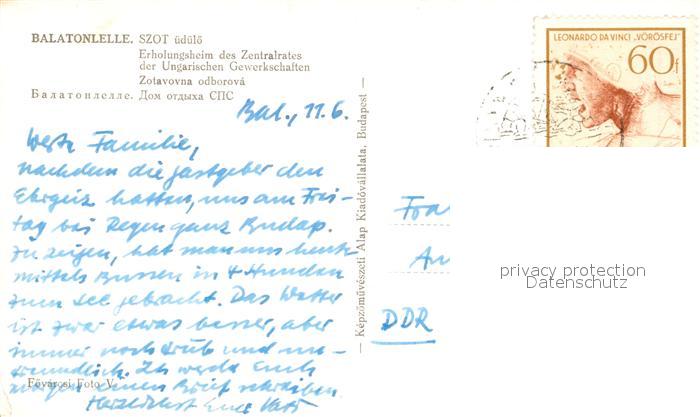 BALATONLELLE. SZOT üdülő
Erholungsheim des Zentralrates
der Ungarischen Gewerkschaften
Zotavovna odborová
Балатонлелле. Дом отдыха СПС
Bal., 11.6.
Werte Familie,
nachdem die Gastgeber den
Ehrgeiz hatten, uns am Frei-
tag bei Regen ganz Budap.
zu zeigen, hat man uns heute
mittels Bussen in 4 Stunden
zum See gebracht. Das Wetter
ist zwar etwas besser, aber
immer noch trüb und un-
freundlich. Ich werde Euch
morgen einen Brief schreiben
Herzlichst Eure
Fővárosi Foto V.
— Képzőművészeti Alap Kiadóvállalata, Budapest —
LEONARDO DA VINCI „VÖRÖSFEJ"
60f
Fra
An
DDR
privacy protection
Datenschutz